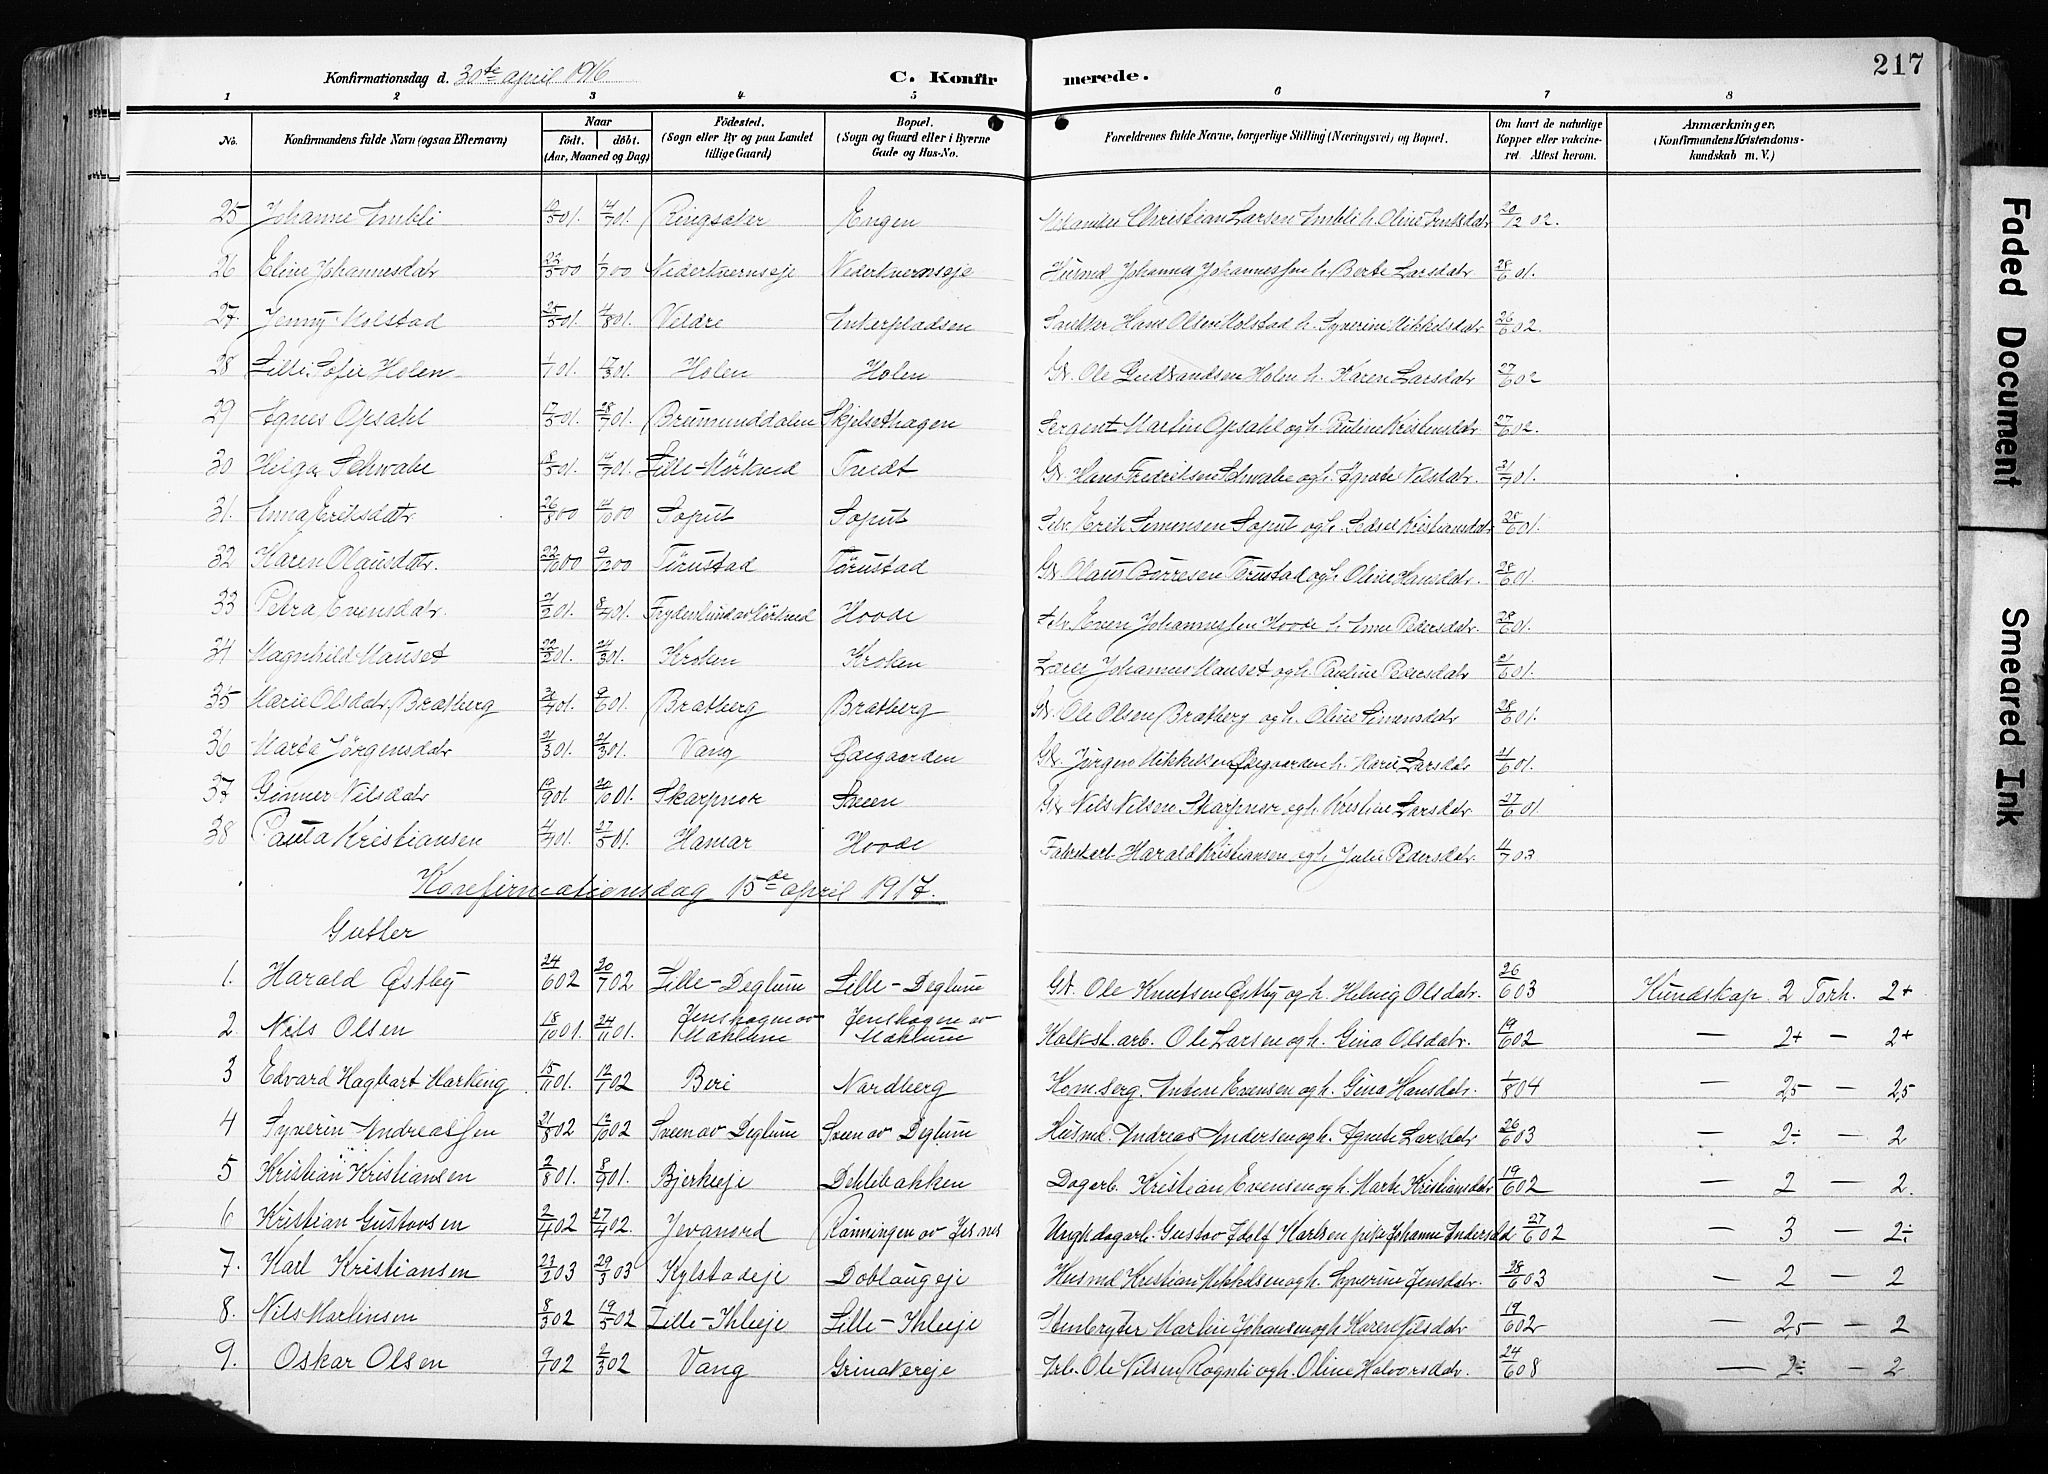 217
Konfirmationsdag d. 30te april 1916 C. Konfirmerede.
1 2 3 4 5 6 7 8
No. Konfirmandens fulde Navn (ogsaa Efternavn) Naar født. døbt. (Aar, Maaned og Dag) Fødested. (Sogn eller By og paa Landet tillige Gaard) Bopæl. (Sogn og Gaard eller i Byerne Gade og Hus-No. Forældrenes fulde Navne, borgerlige Stilling (Næringsvei) og Bopæl. Om havt de naturlige Kopper eller vakcineret. Attest herom. Anmærkninger. (Konfirmandens Kristendomskundskab m. V.)
25 Johanne Embli 19/5 01. 14/7 01. Ringsaker Engen Christian Larsen Embli h. Oline 20/12 02.
26 Eline Johannesdatr 22/5 00 1/7 00 Nederkvernseje Nederkvernseje Husmd Johannes Johannessen h. Berte Larsdatr 28/6 01.
27. Jenny Molstad 25/5 01. 4/8 01. Veldre Enkerpladsen Hans Olsen Molstad h. Syverine Mikkelsdatr 26/6 02.
28 Lilli Sofie Holen 1/1 01. 17/3 01. Holen Holen Gbr. Ole Gudbrandsen Holen h. Karen Larsdatr 27/6 02
29 Agnes Opsahl 17/5 01. 28/7 01. Brumunddalen Skjelsethagen Sergent Martin Opsahl og h. Pauline Kristensdatr 27/6 02.
30 Helga Schwabe 8/5 01. 14/7 01. Lille-Mørkved Tredt Gbr. Hans Fredriksen Schwabe og h. Agnete Nilsdatr. 21/7 01.
31. Emma Eriksdatr. 26/8 00 14/10 00 Soput Soput Selv. Erik Simensen Soput og h. Sidsel Kristiansdatr 28/6 01.
32 Karen Olausdatr. 22/10 00 9/12 00 Tørustad Tørustad Gbr. Olaus Børresen Tørustad og h. Oline Hansdatr. 28/6 01.
33 Petra Evensdatr. 21/2 01. 8/4 01. Frydenlund av Mørkved Hovde Selv. Even Johannessen Hovde h. Pedersdatr. 28/6 01.
34 Magnhild Mauset 22/2 01. 24/3 01. Kroken Kroken Lærer Johannes Mauset og h. Pauline Pedersdatr 21/6 01.
35 Marie Olsdatr. Bratberg 21/4 01. 9/6 01. Bratberg Bratberg Gbr. Ole Olsen Bratberg og h. Oline Simensdatr 28/6 01.
36 Marta Jørgensdatr 2/3 01. 21/3 01. Vang Ødegaarden Gbr. Jørgen Mikkelsen Ødegaarden h. Marie Larsdatr 21/6 01.
37 Ginner Nilsdatr 19/9 01. 20/10 01. Skarpnor Sveen Gbr Nils Nilsen Skarpnor og h. Kristine Larsdatr. 27/6 01.
38 Paula Kristiansen 4/4 01. 27/5 01. Hamar Hovde Fabrikarb. Harald Kristiansen og h. Julie Pedersdatr. 4/7 03
Konfirmationsdag 15de april 1917.
Gutter
1. Harald Østby 24/6 02 20/7 02 Lille-Deglum Lille-Deglum Gbr. Ole Knutsen Østby og h. Helvig Olsdatr. 26/6 03 Kundskap 2 Forh. 2+
2. Nils Olsen 18/10 01. 24/11 01. Jenshagen av Maklum Jenshagen av Maklum Kalkst. arb. Ole Larsen og h. Gina Olsdatr. 19/6 02 — 2+ — 2+
3 Edvard Hagbart Harking 15/11 01. 12/1 02 Beri Nordberg Kom. serg. Anton Evensen og h. Gina Hansdatr. 1/8 04 — 2,5 — 2,5
4 Syverin Andreassen 21/8 02 12/10 02 Sveen av Deglum Sveen av Deglum Husmd. Andreas Andersen og h. Agnete Larsdatr 26/6 03 — 2÷ — 2
5 Kristian Kristiansen 2/8 01. 8/9 01. Bjerkeeje Dehlibakken Dagarb. Kristian Evensen og h. Marte Kristiansdatr 19/6 02 — 2 — 2.
6 Kristian Gustavsen 2/4 02 27/4 02. Jevanord Rønningen av Jesnes Ungk. dagarb. Gustav Adolf Karlsen pike Johanne Andersdtr 27/6 02 — 3 — 2÷
7. Karl Kristiansen 23/2 03 29/3 03 Kylstadeje Doblougeje Husmd Kristian Mikkelsen og h. Syverine Jensdatr. 28/6 03 — 2 — 2
8. Nils Martinsen 8/3 02 19/5 02 Lille-Ihleeje Lille-Ihleeje Stenbryter Martin Johansen og h. Karen Nilsdatr 19/6 02 — 2,5 — 2
9. Oskar Olsen 9/1 02 2/3 02 Vang Grinakereje Arb. Ole Nilsen Rognli og h. Oline Halvorsdatr. 24/6 08 — 2÷ — 2
Faded Document
Smeared Ink